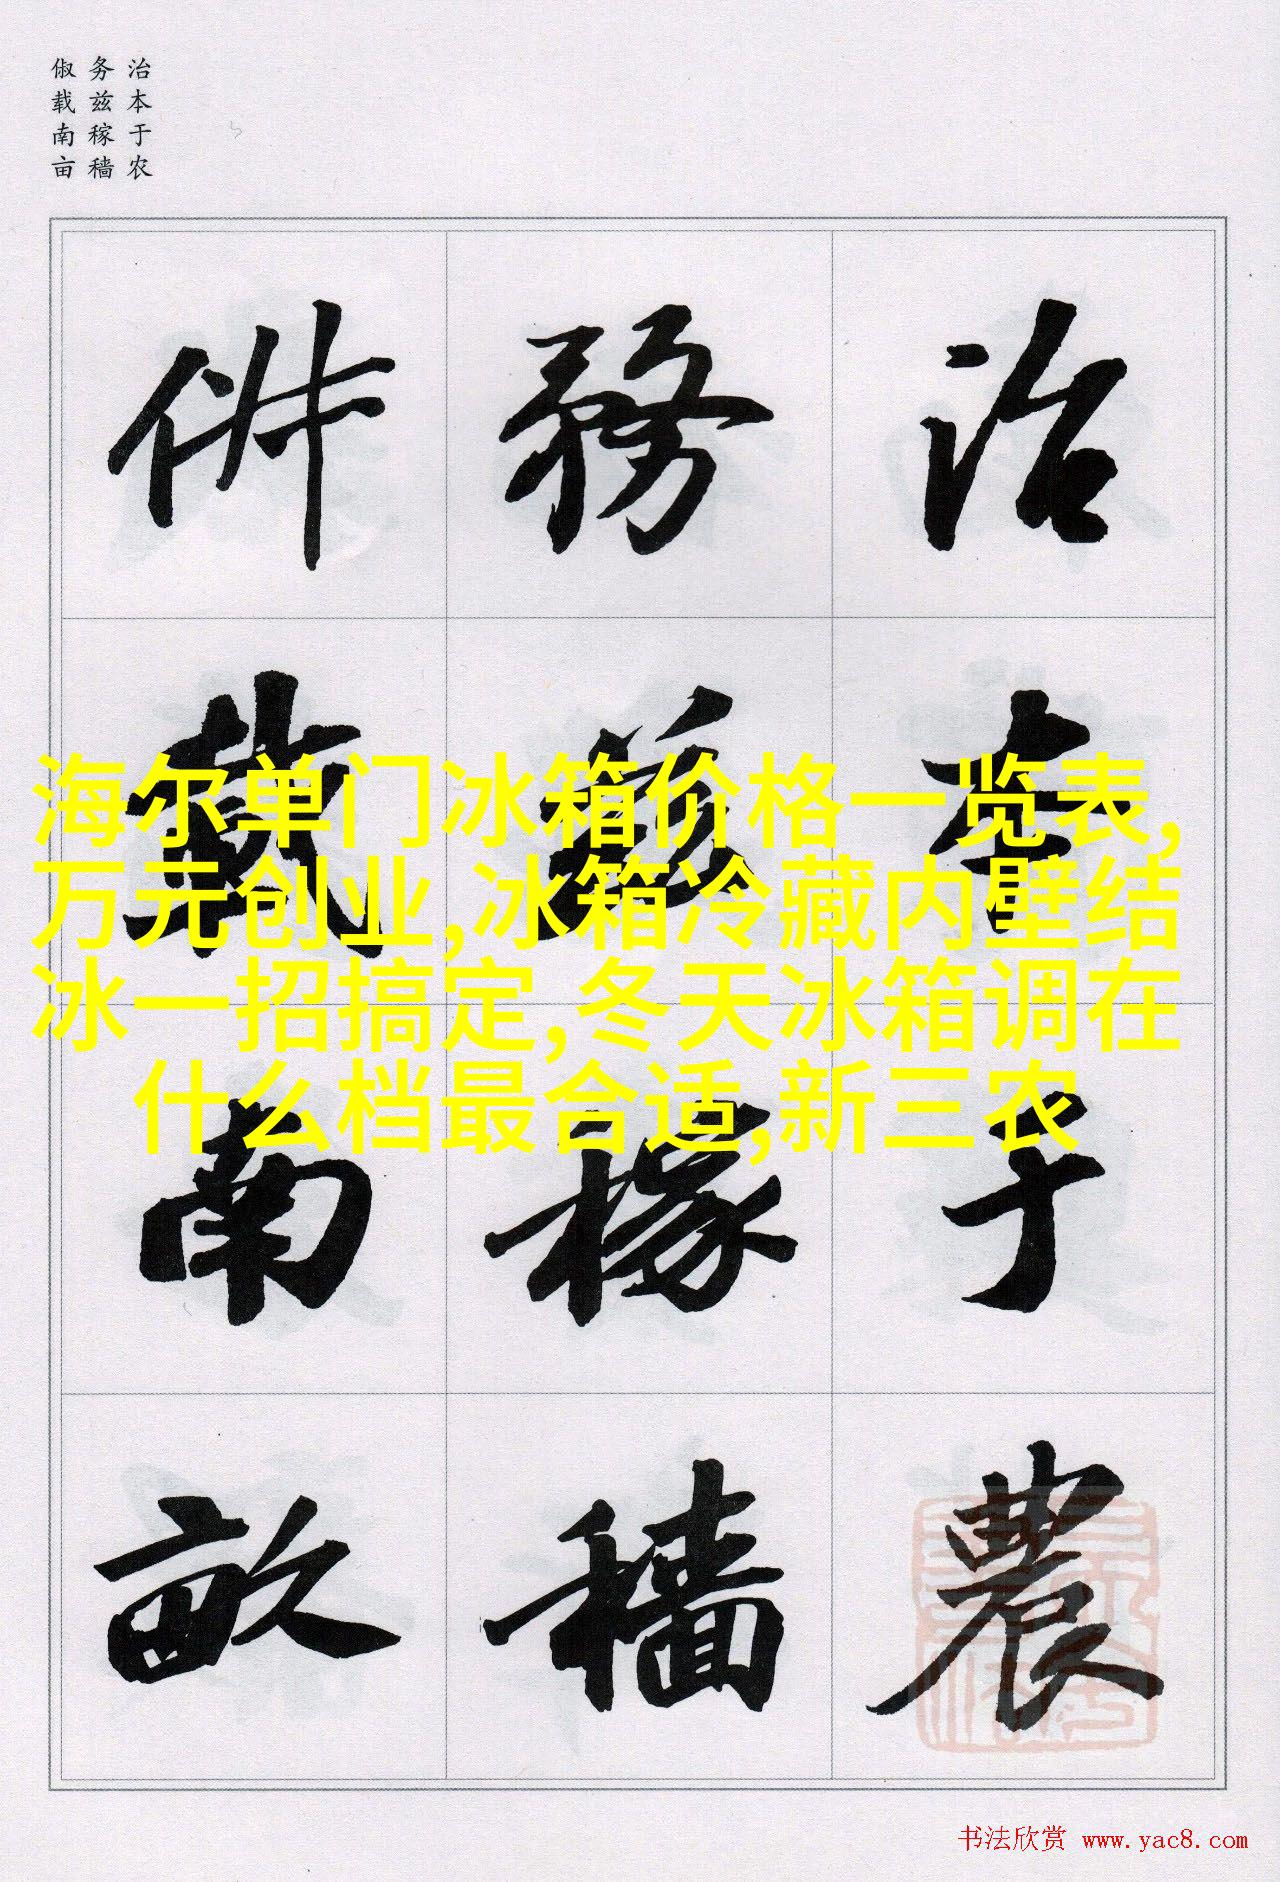 治本于农
务兹稼穑
俶载南亩
治本于農
務兹稼穡
俶載南畝
海尔单门冰箱价格一览表,
万元创业,冰箱冷藏内壁结
冰一招搞定,冬天冰箱调在
什么档最合适,新三农
书法欣赏 www.yac8.com